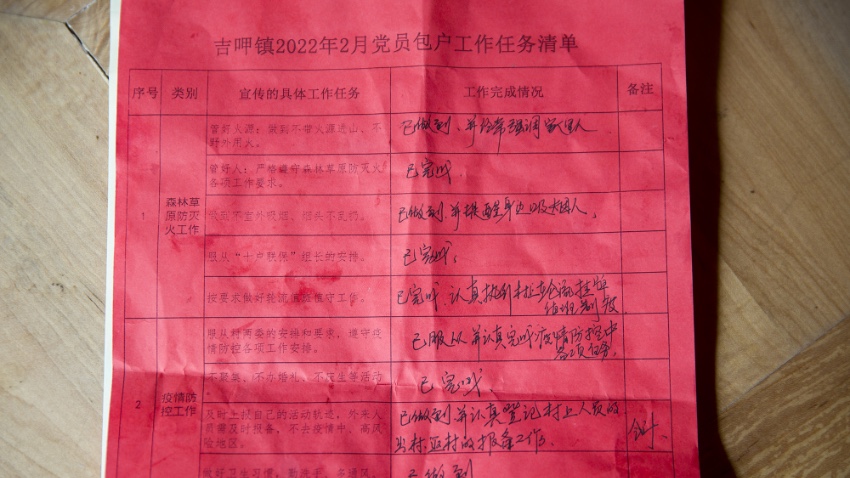 吉呷镇2022年2月党员包户工作任务清单
序号 类别 宣传的具体工作任务 工作完成情况 备注
1
森林草
原防灭
火工作
管好火源：做到不带火源进山、不
野外用火。
已做到，并经常强调家里人
管好人：严格遵守森林草原防灭火
各项工作要求。
已完成.
做到不室外吸烟，烟头不乱扔。
已做到并提醒身边吸烟人。
服从“十户联保”组长的安排。
已完成。
按要求做好轮流
值守工作。
已完成 认真执行村上轮流挂牌
值班制度
服从村两委的安排和要求，遵守疫
情防控各项工作安排。
已服从并认真完成疫情防控中
各项任务。
2
疫情防
控工作
不聚集、不办婚礼、
等活动
已完成.
及时上报自己的活动轨迹，外来人
员需及时报备，不去疫情中、高风
险地区。
已做到并认真登记村上人员的
出村
村的报备工作.
做好卫生习惯：勤洗手、多通风、
已做到